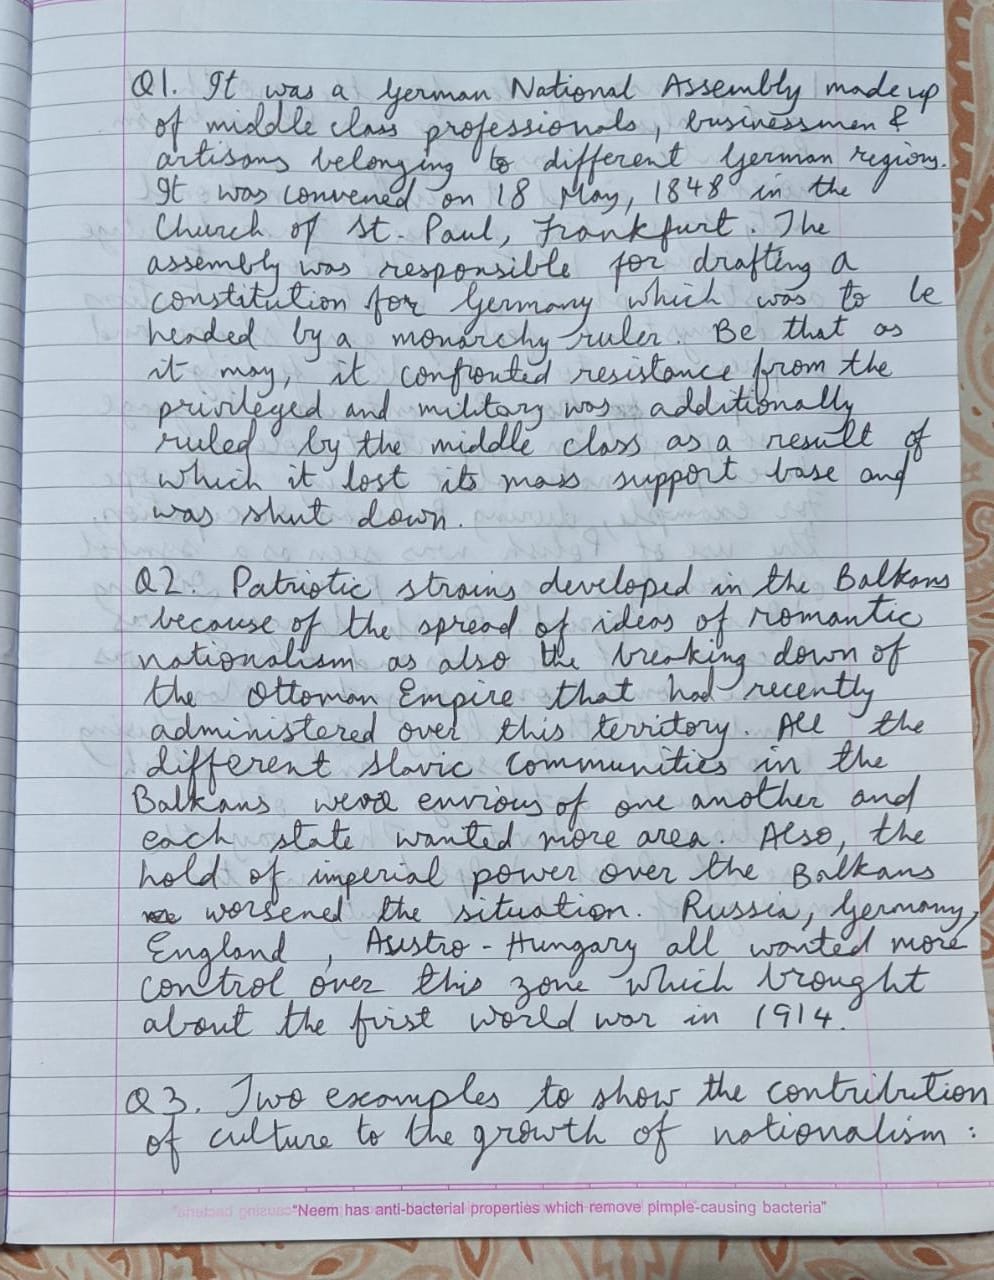 Q1. It was a German National Assembly made up
of middle class professionals, businessmen &
artisans belonging to different German regions.
It was convened on 18 May, 1848 in the
Church of St. Paul, Frankfurt. The
assembly was responsible for drafting a
constitution for Germany which was to be
headed by a monarchy ruler. Be that as
it may, it confronted resistance from the
privileged and military was additionally
ruled by the middle class as a result of
which it lost its mass support base and
was shut down.
Q2. Patriotic strains developed in the Balkans
because of the spread of ideas of romantic
nationalism as also the breaking down of
the Ottoman Empire that had recently
administered over this territory. All the
different slavic communities in the
Balkans were envious of one another and
each state wanted more area. Also, the
hold of imperial power over the Balkans
worsened the situation. Russia, Germany,
England, Austro-Hungary all wanted more
control over this zone which brought
about the first world war in 1914.
Q3. Two examples to show the contribution
of culture to the growth of nationalism:
"Neem has anti-bacterial properties which remove pimple-causing bacteria"